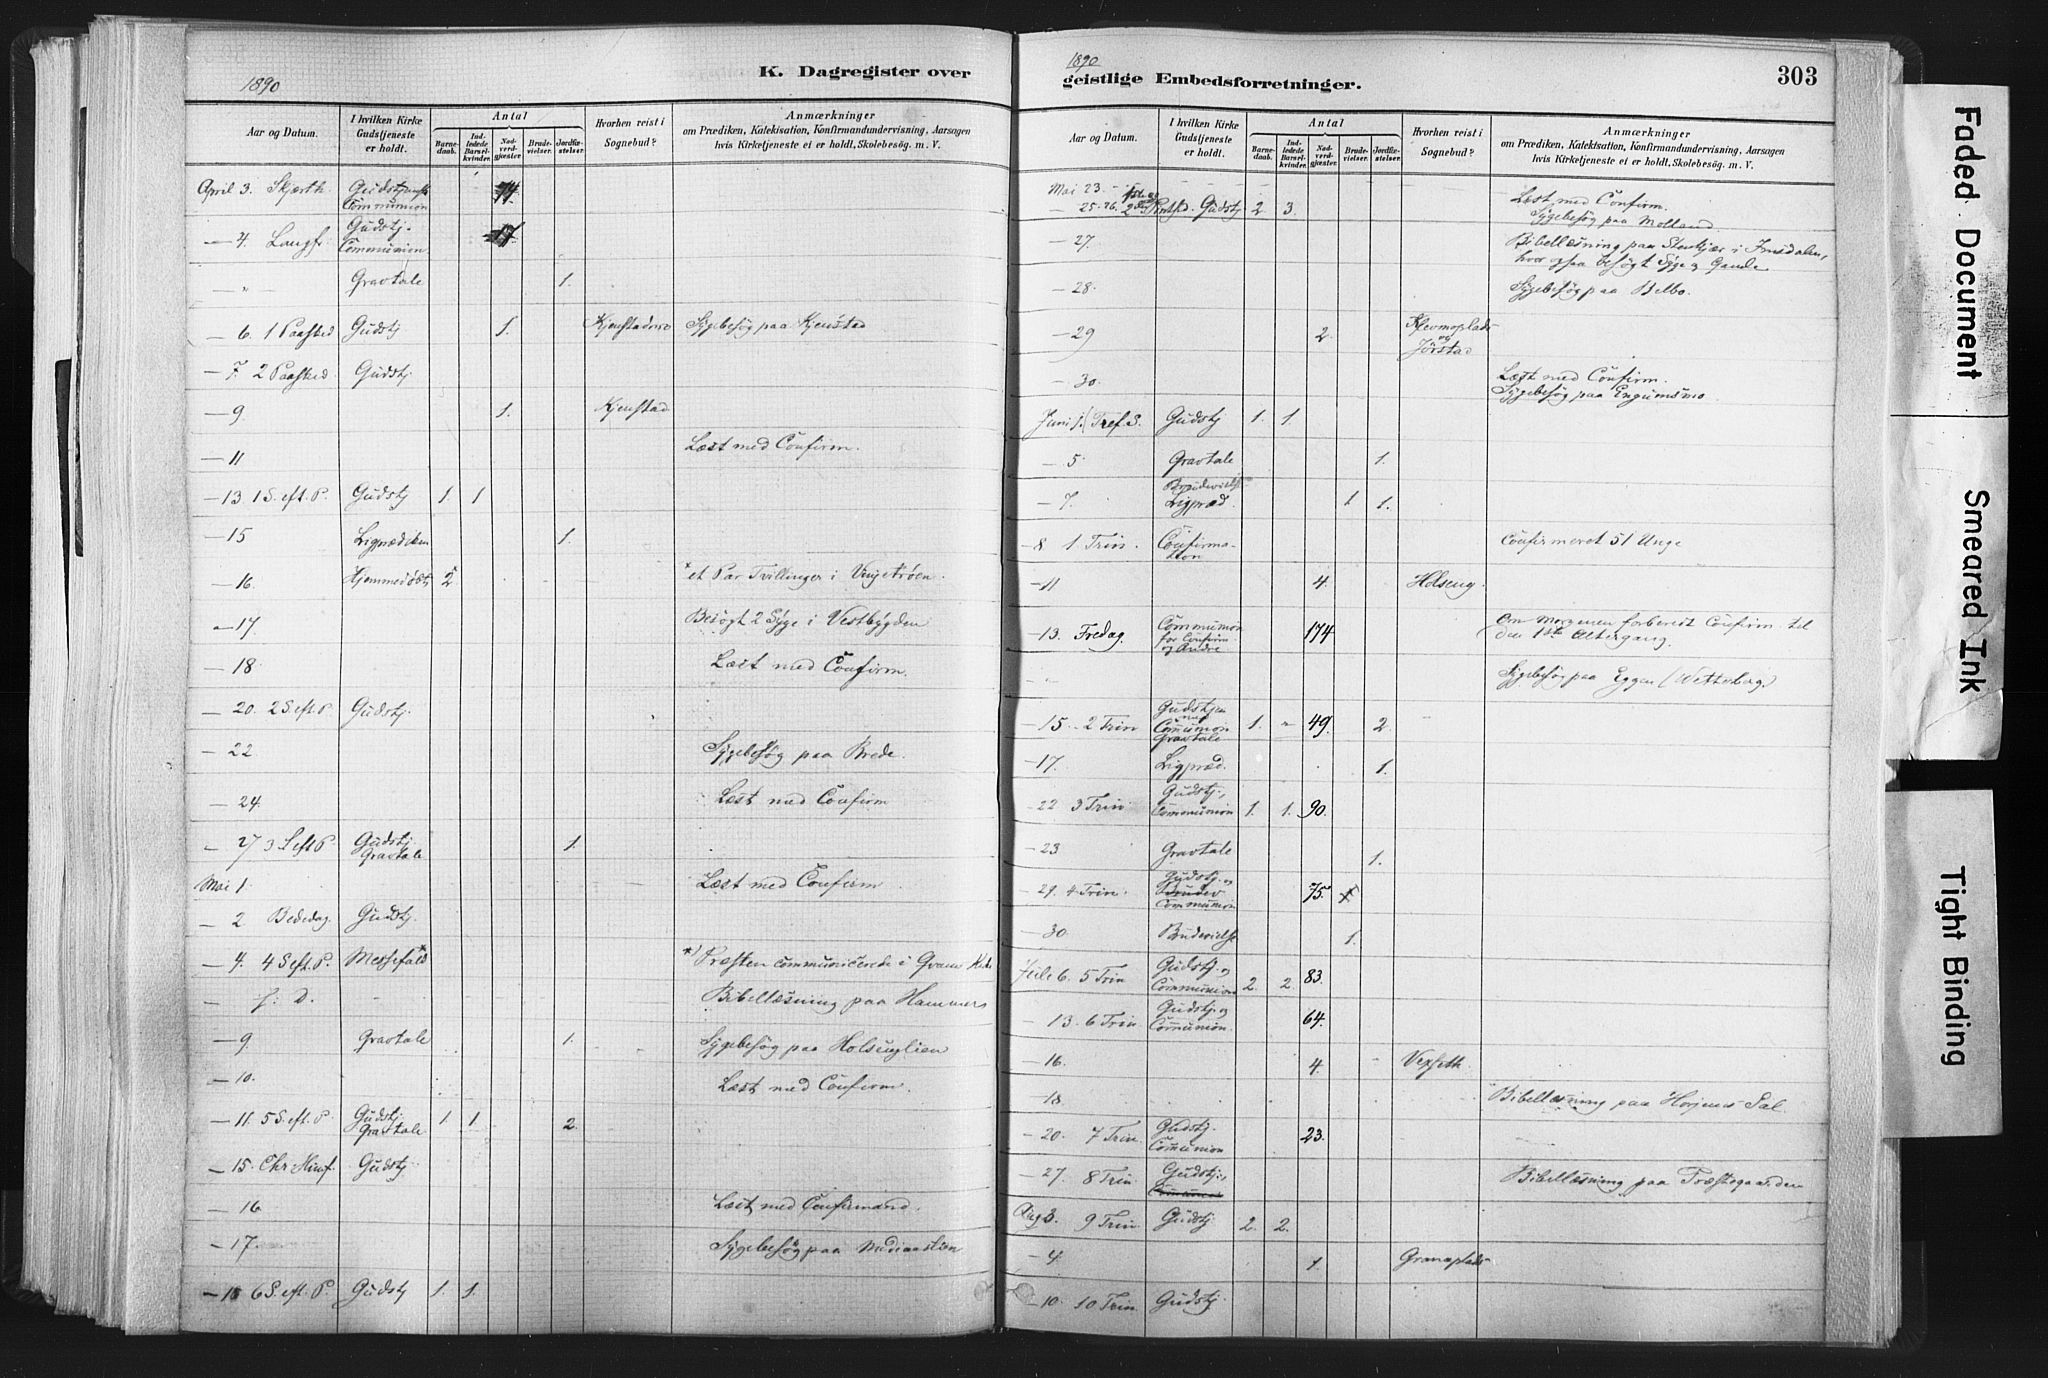 1890
K. Dagregister over
Aar og Datum.
I hvilken Kirke Gudstjeneste er holdt.
Antal
Barnedaab.
Indledede Barselkvinder.
Nadverdgjæster
Brudevielser.
Jordfæstelser.
Hvorhen reist i Sognebud?
Anmærkninger
om Prædiken, Katekisation, Konfirmandundervisning, Aarsagen
hvis Kirketjeneste ei er holdt, Skolebesøg. m. V.
April 3. Skjærth. Gudstjeneste Communion 74.
— 4. Langfr. Gudstj. Communion 17
" — Gravtale 1.
— 6. 1 Paasked Gudstj 1. Sygebesøg paa Kjenstad
— 7. 2 Paasked. Gudstj
— 9 1. Kjenstad
— 11 Læst med Confirm.
— 13 1 S. eft. P. Gudstj 1. 1
— 15 Ligprædiken 1.
— 16. Hjemmedøbt 2 * et Par Tvillinger i Vinjetrøen.
— 17 Besøgt 2 Syge i Vestbygden
— 18 Læst med Confirm.
— 20. 2 S eft P. Gudstj.
— 22 Sygebesøg paa Brede.
— 24. Læst med Confirm
— 27 3 S eft P Gudstj Gravtale 1.
Mai 1. Læst med Confirm
— 2 Bededag Gudstj.
— 4. 4 S eft. P. Messefald* *) Præsten communicerede i Qvam Kirke
— f: d. Bibellæsning paa Hammer
— 9. Gravtale 1. Sygebesøg paa
— 10. Læst med Confirm.
— 11. 5 S. eft P. Gudstj. Gravtale 1. 1. 2.
— 15. Chr. Himf. Gudstj.
— 16 Læst med Confirmand.
— 17. Sygebesøg paa
— 18 6 S. eft. P. Gudstj 1. 1.
1890
geistlige Embedsforretninger.
303
Aar og Datum.
I hvilken Kirke Gudstjeneste er holdt.
Antal
Barnedaab.
Indledede Barselkvinder.
Nadverdgjæster
Brudevielser.
Jordfæstelser.
Hvorhen reist i Sognebud?
Anmærkninger
om Prædiken, Katekisation, Konfirmandundervisning, Aarsagen
hvis Kirketjeneste ei er holdt, Skolebesøg. m. V.
Mai 23. — Læst med Confirm. Sygebesøg paa Molland
— 25-26. 1ste og 2den Pintsed. Gudstj 2. 3.
— 27. Bibellæsning paa Stenkjær i
hvor ogsaa besøgt Syge og Gamle
— 28. Sygebesøg paa Belbo.
— 29 2. og Jørstad
— 30. Læst med Confirm.
Sygebesøg paa
Juni 1. (Tref. S. Gudstj 1. 1.
— 5 Gravtale 1.
— 7. Brudevielse Ligpræd. 1 1.
— 8 1 Trin. Confirmation Confirmeret 51 Unge
— 11 4. Holseng.
— 13. Fredag. Communion for Confirm og Andre 174 Om Morgenen forberedt Confirm. til
den 1ste Altergang.
" Sygebesøg paa Eggen
— 15. 2 Trin Gudstjen med Communion Gravtale 1. " 49. 2.
— 17. Ligpræd. 1.
— 22 3 Trin. Gudstj., Communion 1. 1. 90.
— 23 Gravtale 1.
— 29. 4 Trin. Gudstj. og Brudev Communion 75.
— 30. Brudevielse 1.
Juli 6. 5 Trin Gudstj. og Communion 2. 2. 83.
— 13. 6 Trin Gudstj. og Communion. 64.
— 16. 4.
— 18. Bibellæsning paa
— 20. 7 Trin. Gudstj. Communion 23.
— 27. 8 Trin. Gudstj., Communion Bibellæsning paa Præstegaarden
Aug 3. 9 Trin. Gudstj 2. 2.
— 4 1
— 10. 10 Trin. Gudstj.
Faded Document
Smeared Ink
Tight Binding